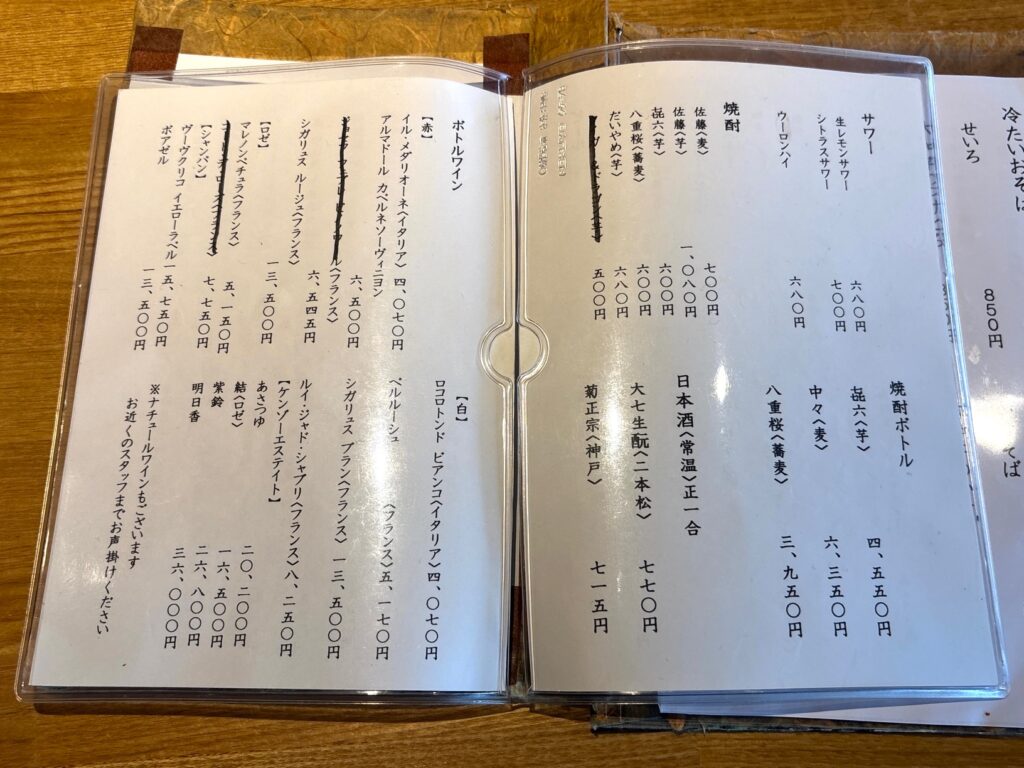 冷たいおそば
せいろ 850円
サワー
生レモンサワー 六八〇円
シトラスサワー 七〇〇円
ウーロンハイ 六八〇円
焼酎
佐藤〈麦〉 七〇〇円
佐藤〈芋〉 一、〇八〇円
㐂六〈芋〉 六〇〇円
八重桜〈蕎麦〉 六〇〇円
だいやめ〈芋〉 六八〇円
五〇〇円
焼酎ボトル
㐂六〈芋〉 四、五五〇円
中々〈麦〉 六、三五〇円
八重桜〈蕎麦〉 三、九五〇円
日本酒〈常温〉正一合
大七生酛〈二本松〉 七七〇円
菊正宗〈神戸〉 七一五円
ボトルワイン
【赤】
イル・メダリオーネ〈イタリア〉 四、〇七〇円
アルマドール カベルネソーヴィニヨン 六、五〇〇円
ル〈フランス〉 六、五四五円
シガリュス ルージュ〈フランス〉 一三、五〇〇円
【ロゼ】
マレノンペチュラ〈フランス〉 五、一五〇円
七、七五〇円
【シャンパン】
ヴーヴクリコ イエローラベル 一五、七五〇円
ポアゼル 一三、五〇〇円
【白】
ロコロトンド ビアンコ〈イタリア〉 四、〇七〇円
ベルルーシュ 〈フランス〉 五、一七〇円
シガリュス ブラン〈フランス〉 一三、五〇〇円
ルイ・ジャド・シャブリ〈フランス〉 八、二五〇円
【ケンゾーエステイト】
あさつゆ 二〇、二〇〇円
結〈ロゼ〉 一六、五〇〇円
紫鈴 二六、八〇〇円
明日香 三六、〇〇〇円
※ナチュールワインもございます
お近くのスタッフまでお声掛けください